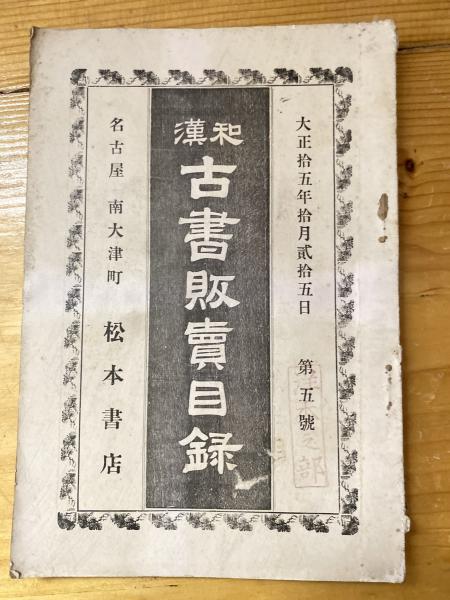 大正拾五年拾月貳拾五日 第五號
和漢
古書販賣目録
名古屋 南大津町 松本書店